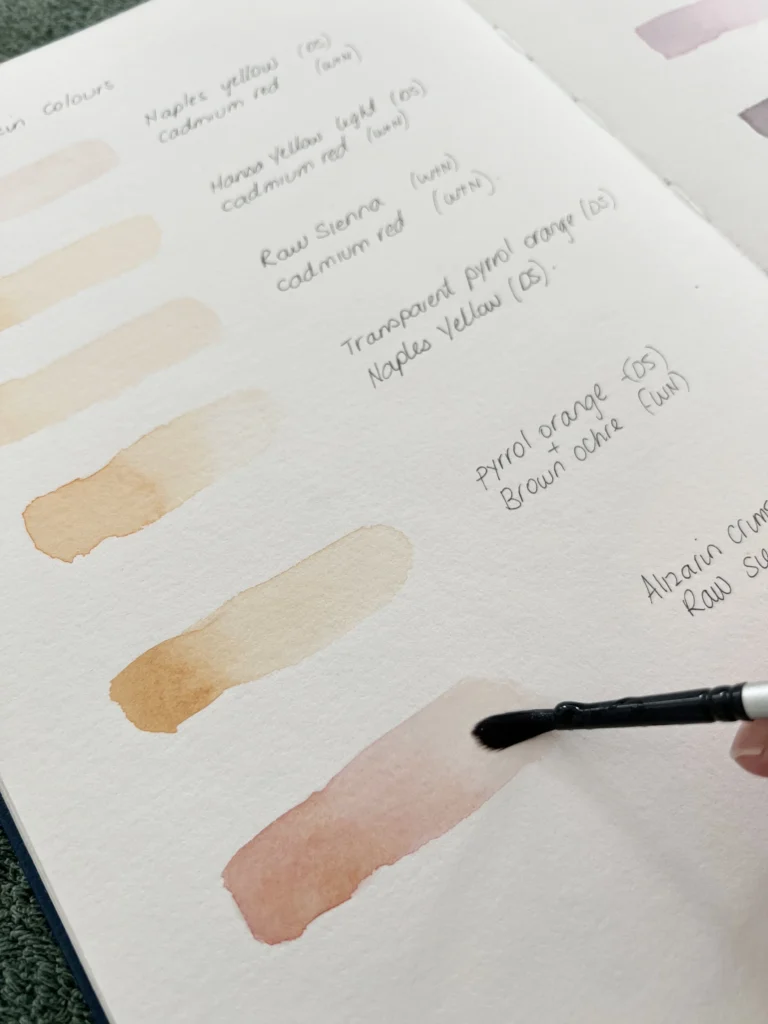 colours
Naples yellow (DS)
cadmium red (W+N)
Hansa Yellow light (DS)
cadmium red (W+N)
Raw Sienna (W+N)
cadmium red (W+N).
Transparent pyrrol orange (DS)
Naples Yellow (DS).
Pyrrol orange (DS)
+
Brown ochre (WN)
Alizarin Crims
Raw Sie